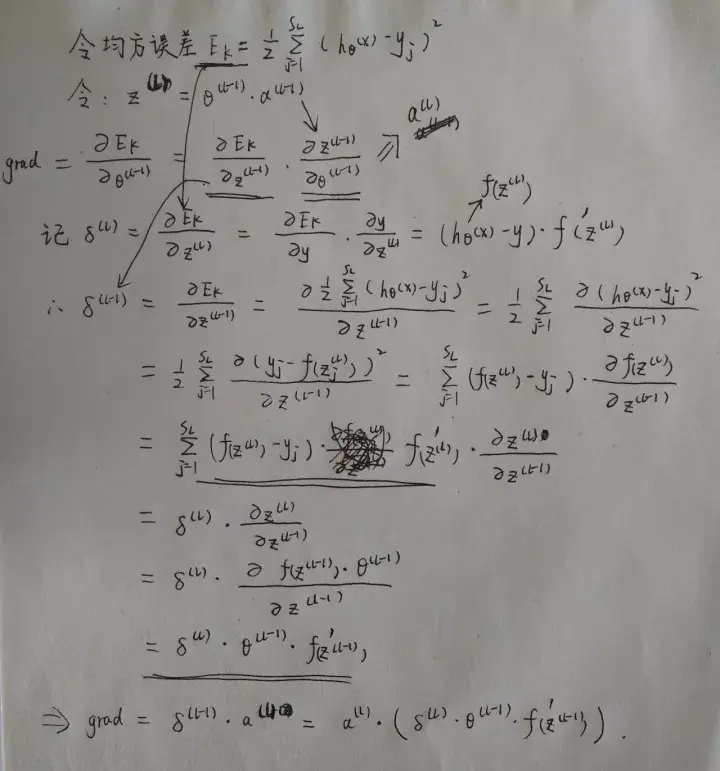 令均方误差 E_k = 1/2 Σ_{j=1}^{S_L} (h_θ(x) - y_j)²
令: z^(L) = θ^(L-1) · a^(L-1)
a^(L)
grad = ∂E_k/∂θ^(L-1) = ∂E_k/∂z^(L-1) · ∂z^(L-1)/∂θ^(L-1) ⇗
f(z^(L))
记 δ^(L) = ∂E_k/∂z^(L) = ∂E_k/∂y · ∂y/∂z^(L) = (h_θ(x) - y) · f'(z^(L))
∴ δ^(L-1) = ∂E_k/∂z^(L-1) = ∂ 1/2 Σ_{j=1}^{S_L} (h_θ(x) - y_j)² / ∂z^(L-1) = 1/2 Σ_{j=1}^{S_L} ∂(h_θ(x) - y_j)² / ∂z^(L-1)
= 1/2 Σ_{j=1}^{S_L} ∂(y_j - f(z_j^(L)))² / ∂z^(L-1) = Σ_{j=1}^{S_L} (f(z^(L)) - y_j) · ∂f(z^(L)) / ∂z^(L-1)
= Σ_{j=1}^{S_L} (f(z^(L)) - y_j) · f'(z^(L)) · ∂z^(L) / ∂z^(L-1)
= δ^(L) · ∂z^(L) / ∂z^(L-1)
= δ^(L) · ∂ f(z^(L-1)) · θ^(L-1) / ∂z^(L-1)
= δ^(L) · θ^(L-1) · f'(z^(L-1))
⇒ grad = δ^(L-1) · a^(L) = a^(L) · (δ^(L) · θ^(L-1) · f'(z^(L-1))).